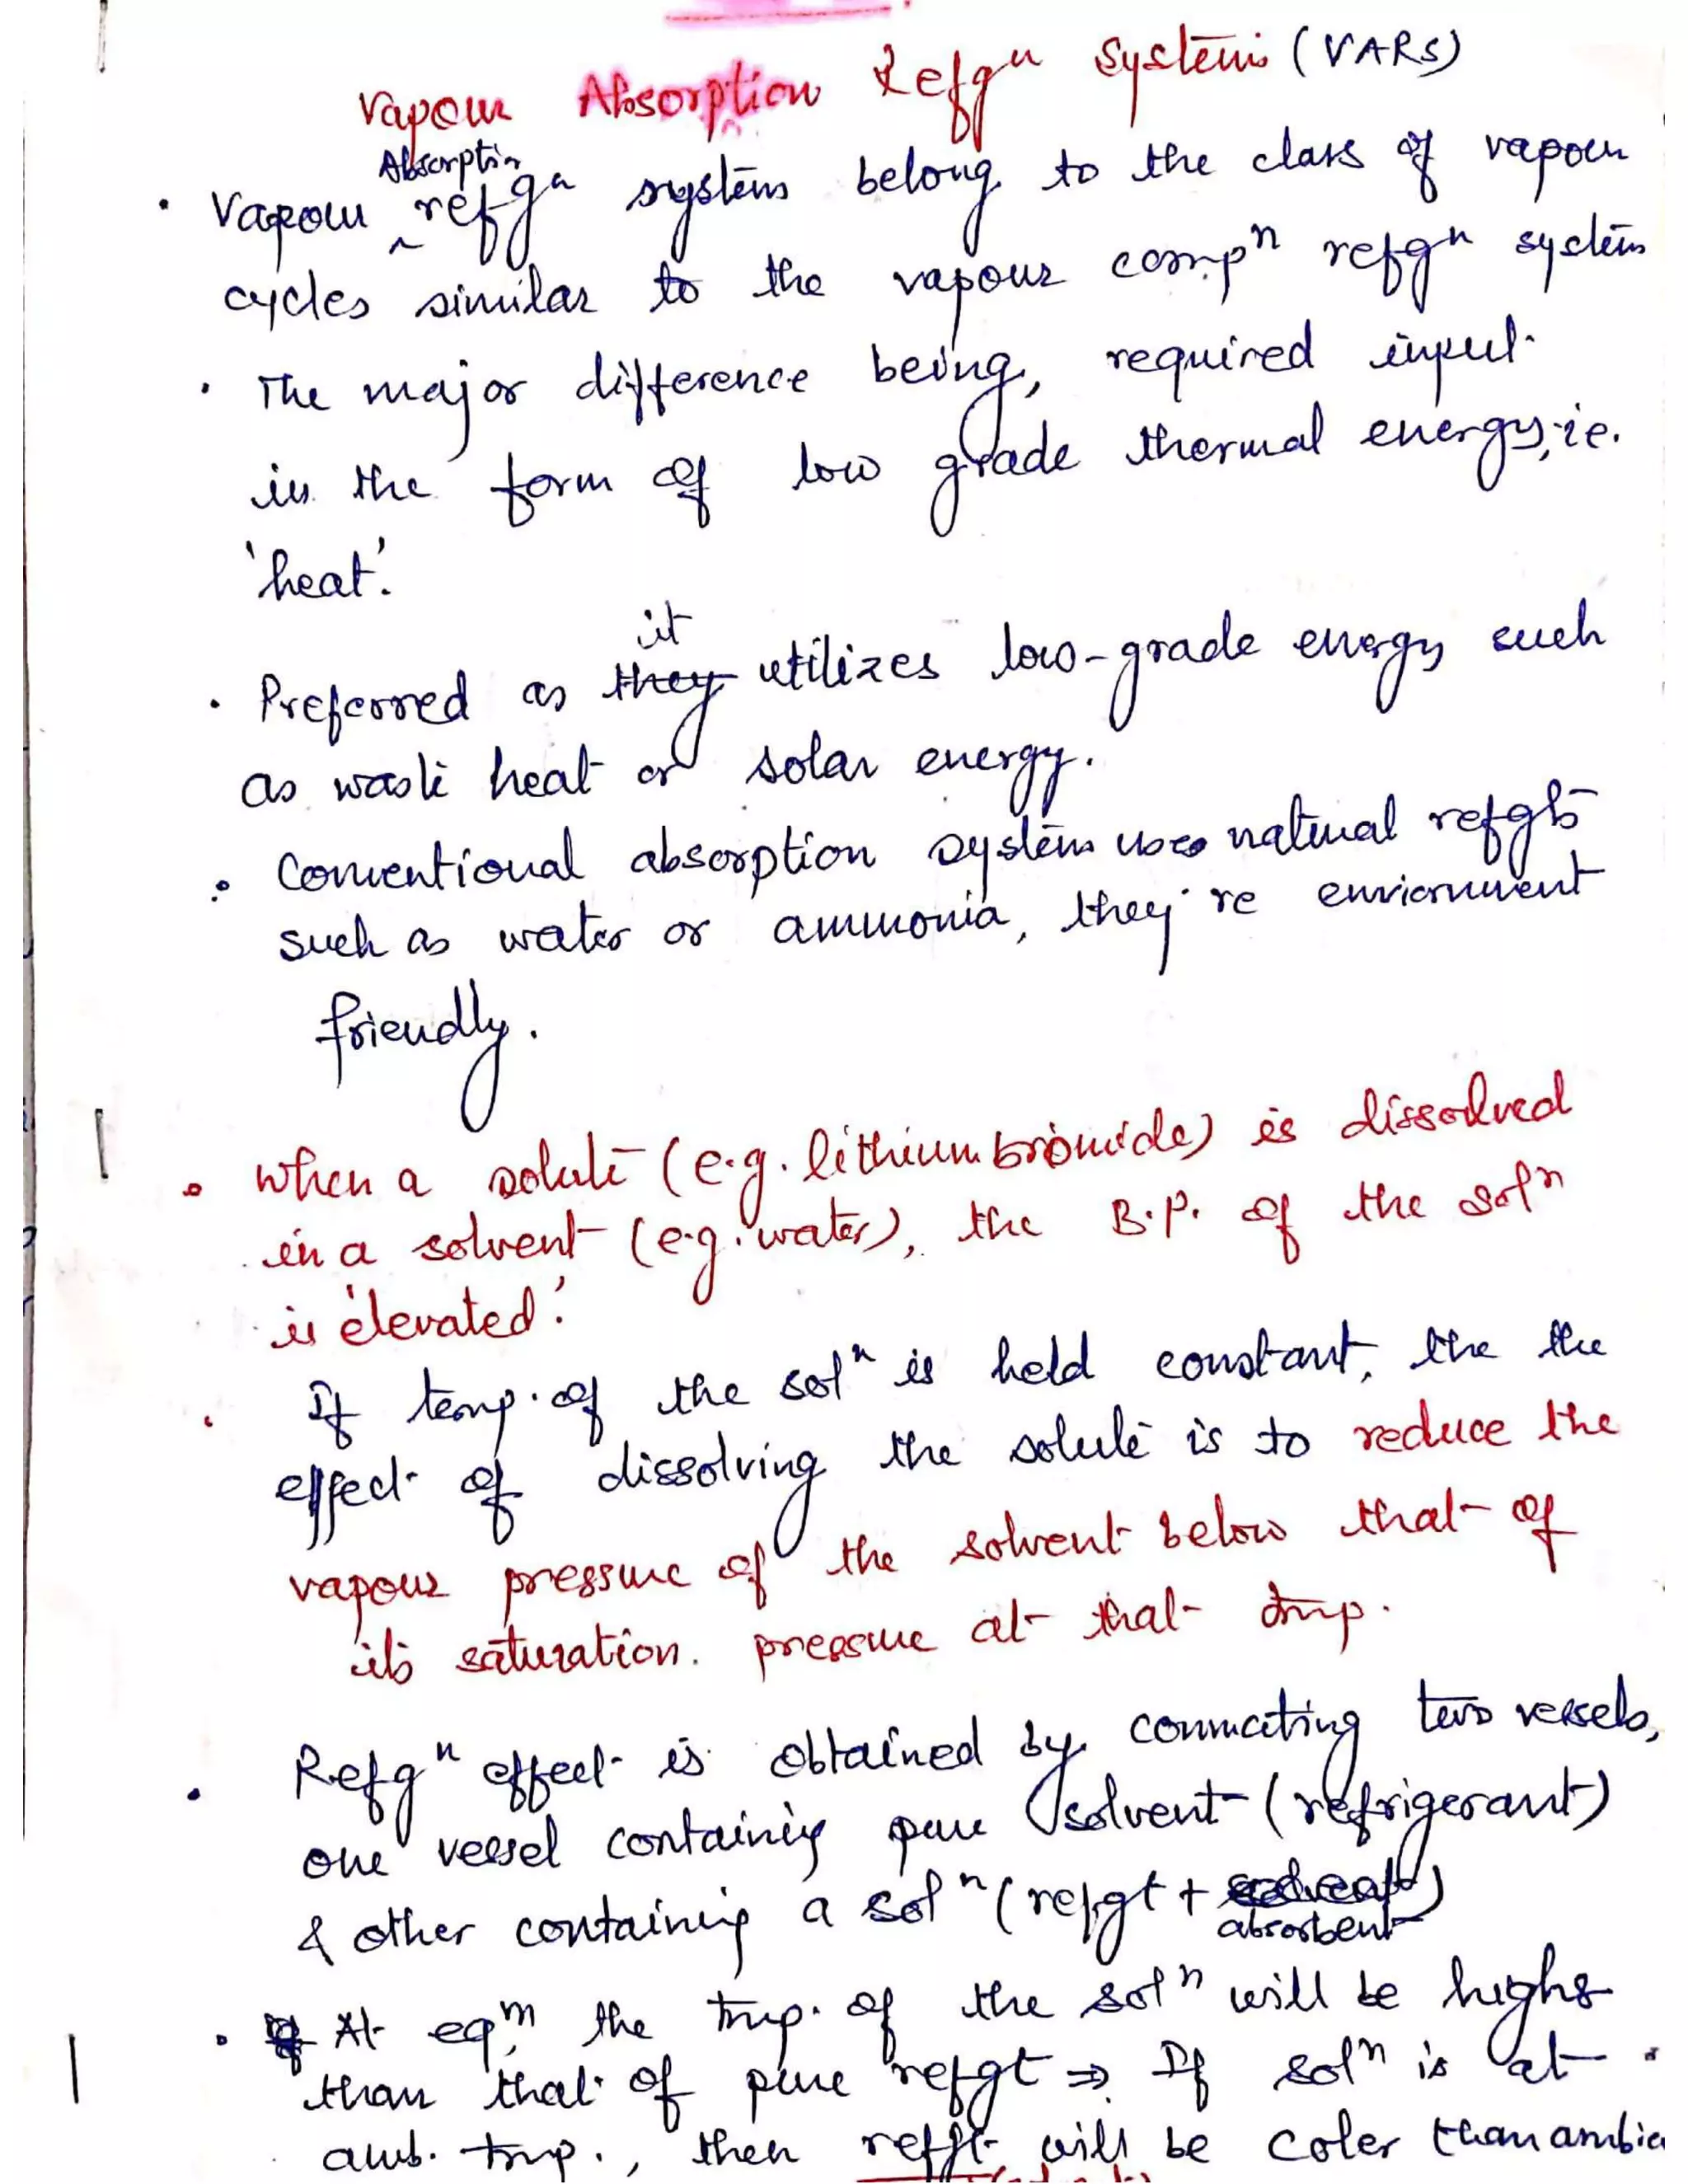 Vapour Absorption Refgn Systems (VARS)
Absorption
• Vapour ^ refgn systems belong to the class of vapour
cycles similar to the vapour compn refgn systems
• The major difference being, required input
in the form of low grade thermal energy, ie.
'heat'.
it
• Preferred as they utilizes low-grade energy such
as waste heat or solar energy.
• Conventional absorption systems uses natural refgts
such as water or ammonia, they're envionment
friendly.
• When a solute (e.g. lithium bromide) is dissolved
in a solvent (e.g. water), the B.P. of the soln
is 'elevated'.
• If temp. of the soln is held constant, the the
effect of dissolving the solute is to reduce the
vapour pressure of the solvent below that of
its saturation pressure at that tmp.
• Refgn effect is obtained by connecting two vessels,
one vessel containing pure solvent (refrigerant)
& other containing a soln (refgt + solvent)
absorbent
• At eqm, the tmp. of the soln will be highr
than that of pure refgt ⇒ If soln is at
amb. tmp., then refgt will be coler than ambie